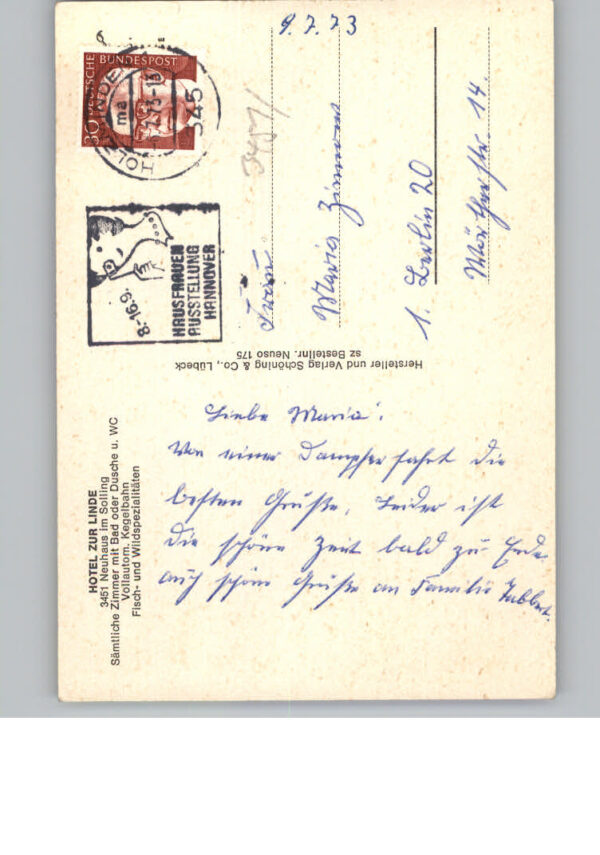 HOTEL ZUR LINDE
3451 Neuhaus im Solling
Sämtliche Zimmer mit Bad oder Dusche u. WC
Vollautom. Kegelbahn
Fisch- und Wildspezialitäten
Liebe Maria!
Von einer Dampferfahrt die
besten Grüße, Leider ist
die schöne Zeit bald zu Ende.
auch schöne Grüße an Familie
Hersteller und Verlag Schöning & Co., Lübeck
sz Bestellnr. Neuso 175
9.7.73
Frau
Maria
1. Berlin 20
14.
DEUTSCHE BUNDESPOST
30
345
8.-16.9.
HAUSFRAUEN
AUSSTELLUNG
HANNOVER
3451